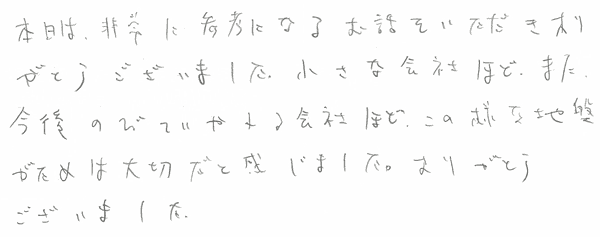 本日は、非常に参考になるお話をいただきあり
がとうございました。小さな会社ほど、また、
今後のびていかれる会社ほど、この様な地盤
がためは大切だと感じました。ありがとう
ございました。